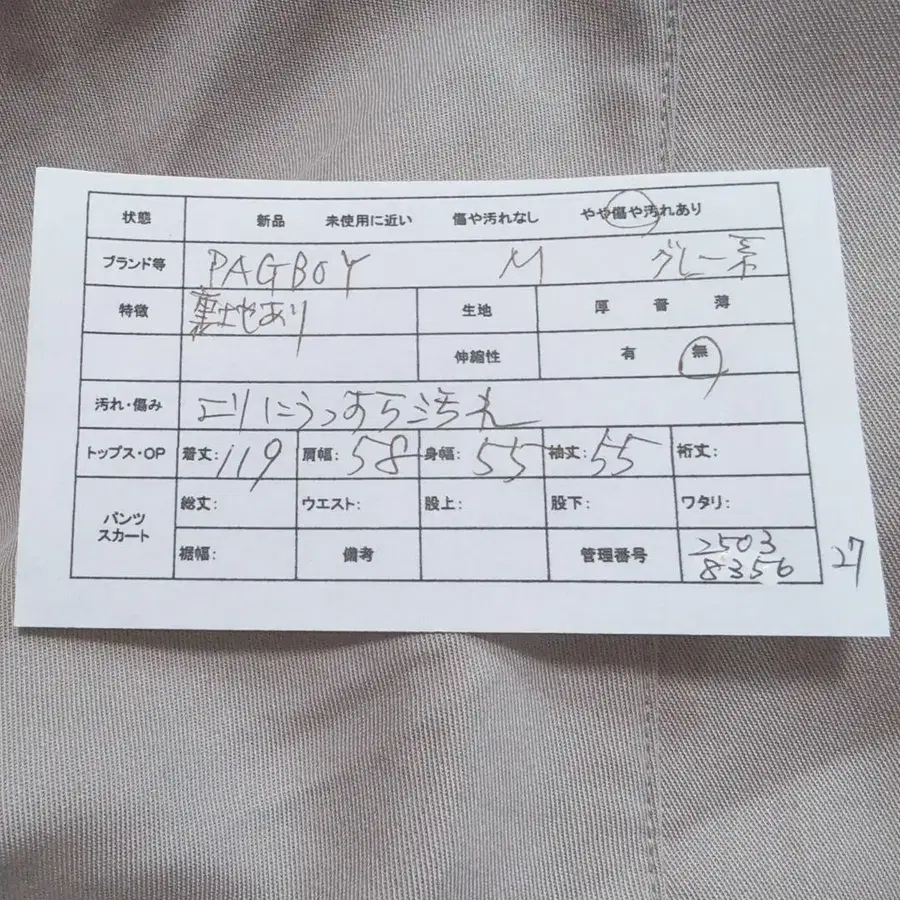 状態 新品 未使用に近い 傷や汚れなし やや傷や汚れあり
ブランド等 PAGBOY M グレー系
特徴 裏地あり 生地 厚 普 薄
伸縮性 有 無
汚れ・傷み エリにうっすら汚れ
トップス・OP 着丈: 119 肩幅: 58 身幅: 55 袖丈: 55 裄丈:
パンツ スカート 総丈: ウエスト: 股上: 股下: ワタリ:
裾幅: 備考 管理番号 2503
8356 27